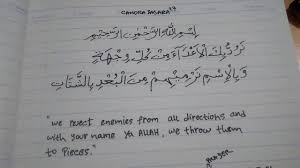 CANDRA SASARA
بِسْمِ اللهِ الرَّحْمٰنِ الرَّحِيْمِ
نَرُدُّ بِكَ الْأَعْدَاءَ مِنْ كُلِّ وِجْهَةٍ
وَبِالْإِسْمِ نَرْمِيْهِمْ مِنَ الْبُعْدِ بِالشَّتَاتِ
"we revect enemies from all directions and
with your name ya ALLAH, we throw them
to pieces."